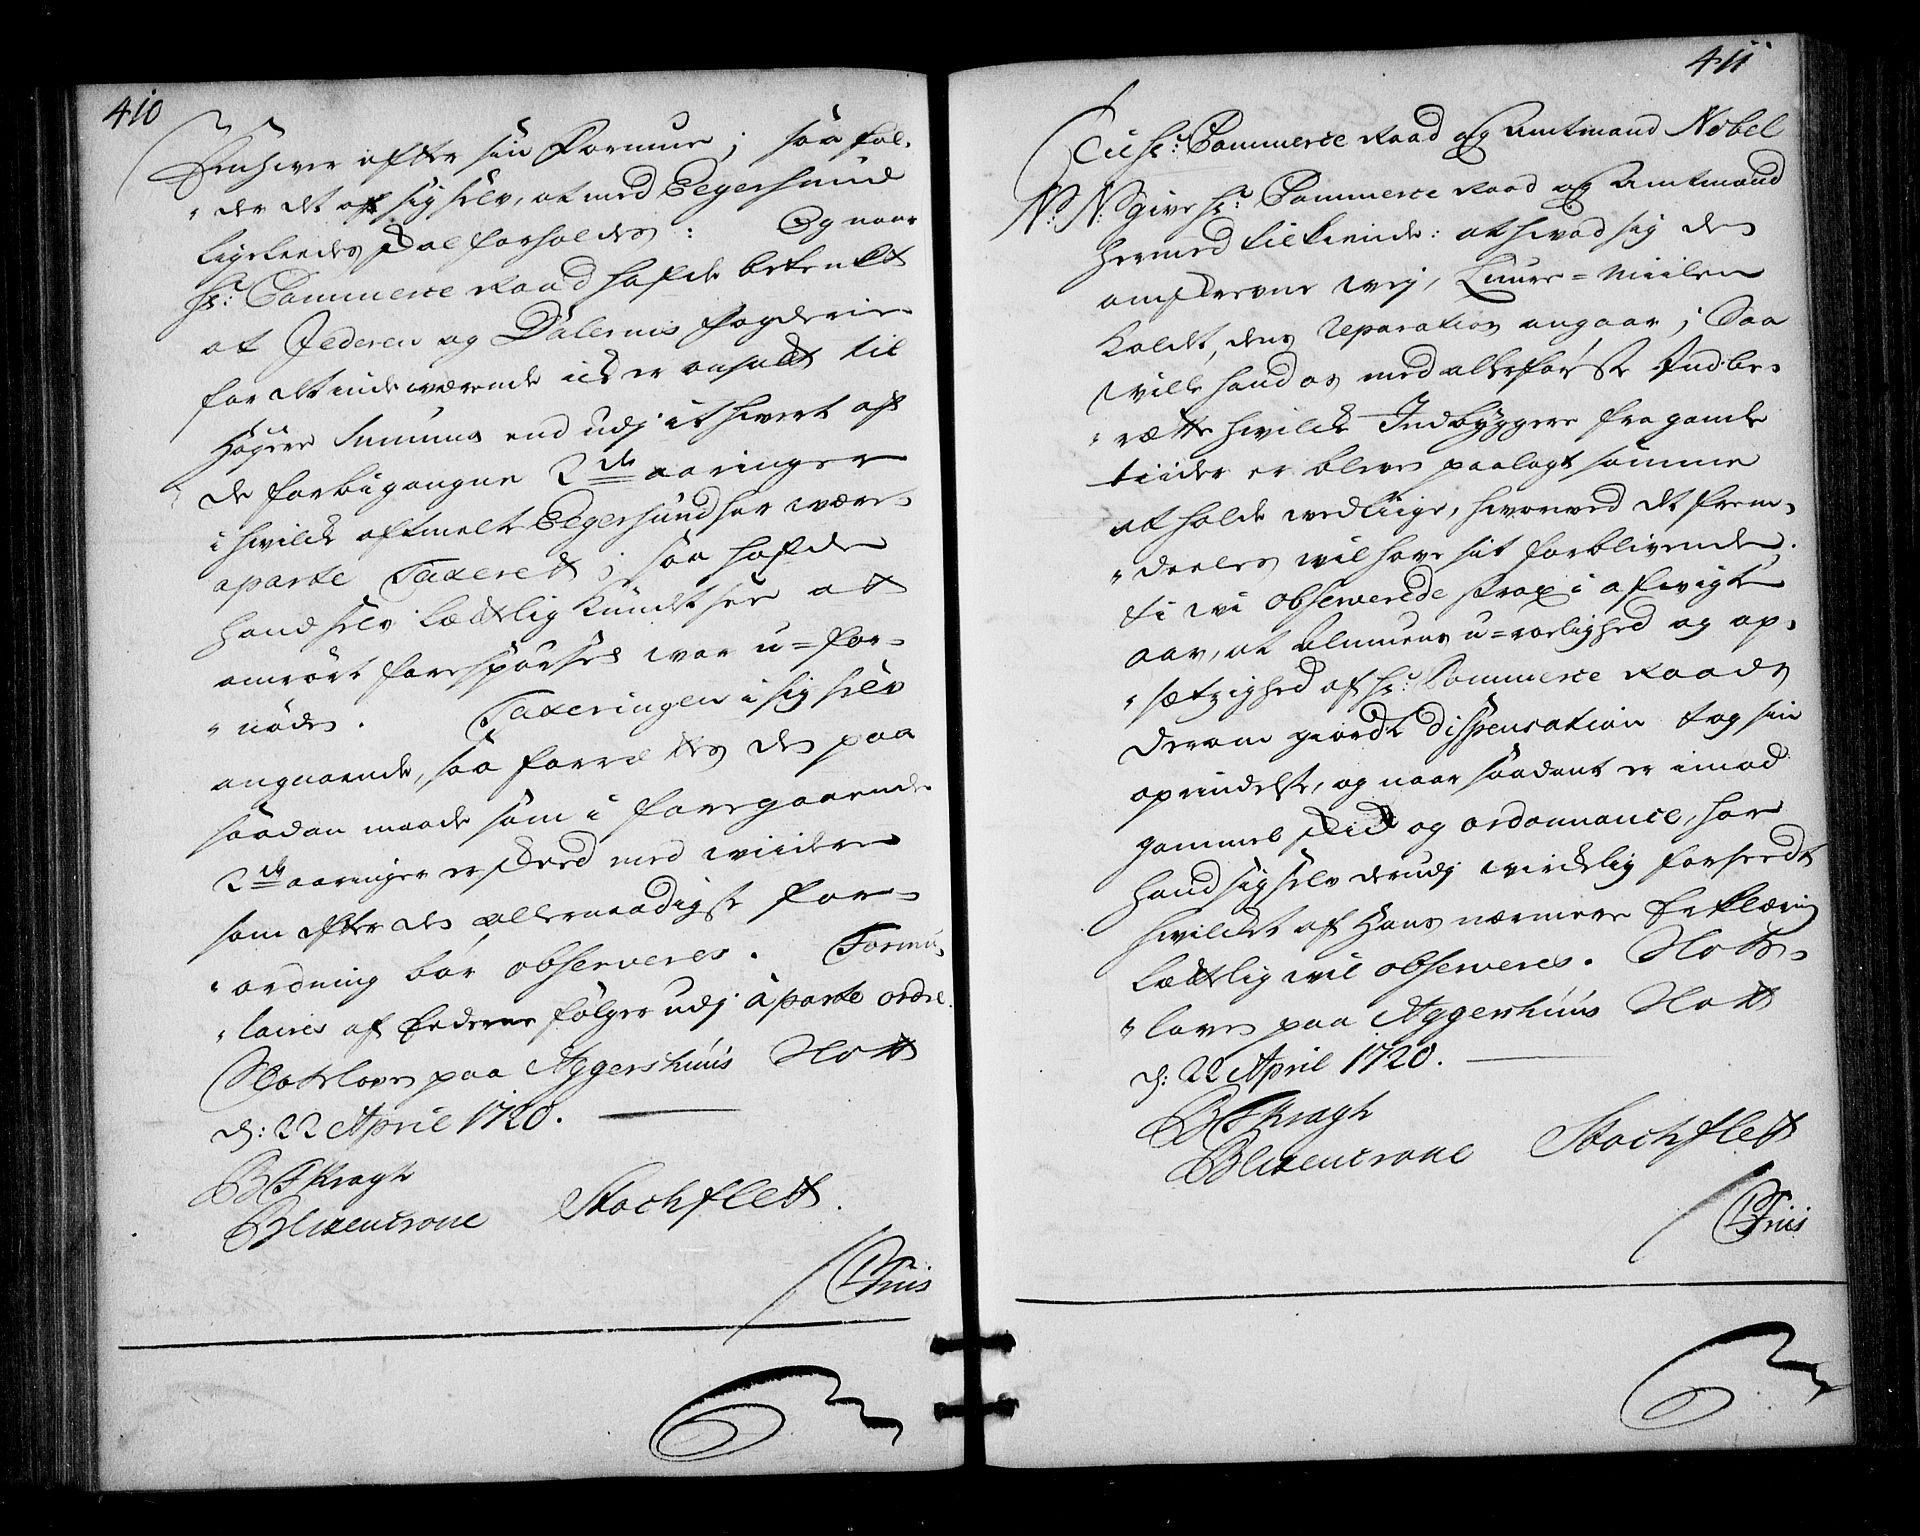 410
Enhver efter sin Formue; saa føl-
"der det af sig selv, at med Egersund
ligeleedes skal forholdes: Og naar
Hr: Commerce Raad hafde betenkt
at Jederen og Dalernis fogderie
for det indeværende icke er ansadt til
høyere Summa end udj it hvert aft
de forbigangne 2de aaringer
i hvilcke oftmelte Egersund har være
aparte Taxeret; saa hafde
hand selv lættelig kundet see at
omrørt forespørsel war u=for-
"nøden. Taxeringen i sig selv
angaaende, saa forrættes den paa
saadan maade som i foregaaende
2de aaringer er skeed med wiidere
som efter den allernaadigste for-
"ordning bør observeres. Formu-
"laires af Ederne følger udj àparte ordre.
Slotzlowen paa Aggershuus Slott
d: 22 April 1720.
B T Kragh
Blixencrone Stochflett.
C Friis
411
Til Hr: Commerce Raad og Amtmand Nobel
N: N: give Hr: Commerce Raad og Amtmand
hermed tilkiende: at hvad sig den
omskrevne wej, Luure=Miilen
kaldet, dens Reparation angaar; Saa
wille hand os med allerførste Indbe-
"rætte hvilcke Indbyggere fra gamle
tiider er bleven paalagt samme
at holde wedliige, hvorwed det frem-
"deeles wil have sit forblivende;
thi wi observerede strax i afvigte
aar, at Almuens u=roelighed og op-
"sætzighed af Hr: Commerce Raads
derom giorde Dispensation tog sin
oprindelse, og naar saadant er imod
gammel skick og ordonnance, har
hand sig selv derudj wirckelig forseedt
hvilcket af Hans nærmere Erklæring
lættelig wil observeres. Slotz-
"lowen paa Aggershuus Slott
d: 22 April 1720.
B T Kragh
Blixencrone Stochflett
C Friis